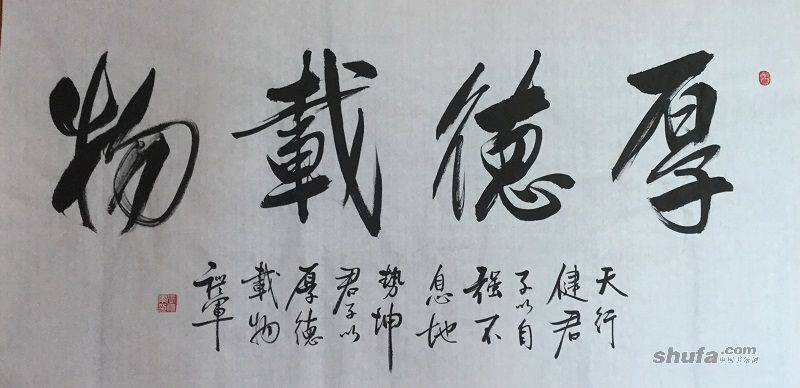 厚德載物
天行
健君
子以自
强不
息地
勢坤
君子以
厚德
載物
shufa.com